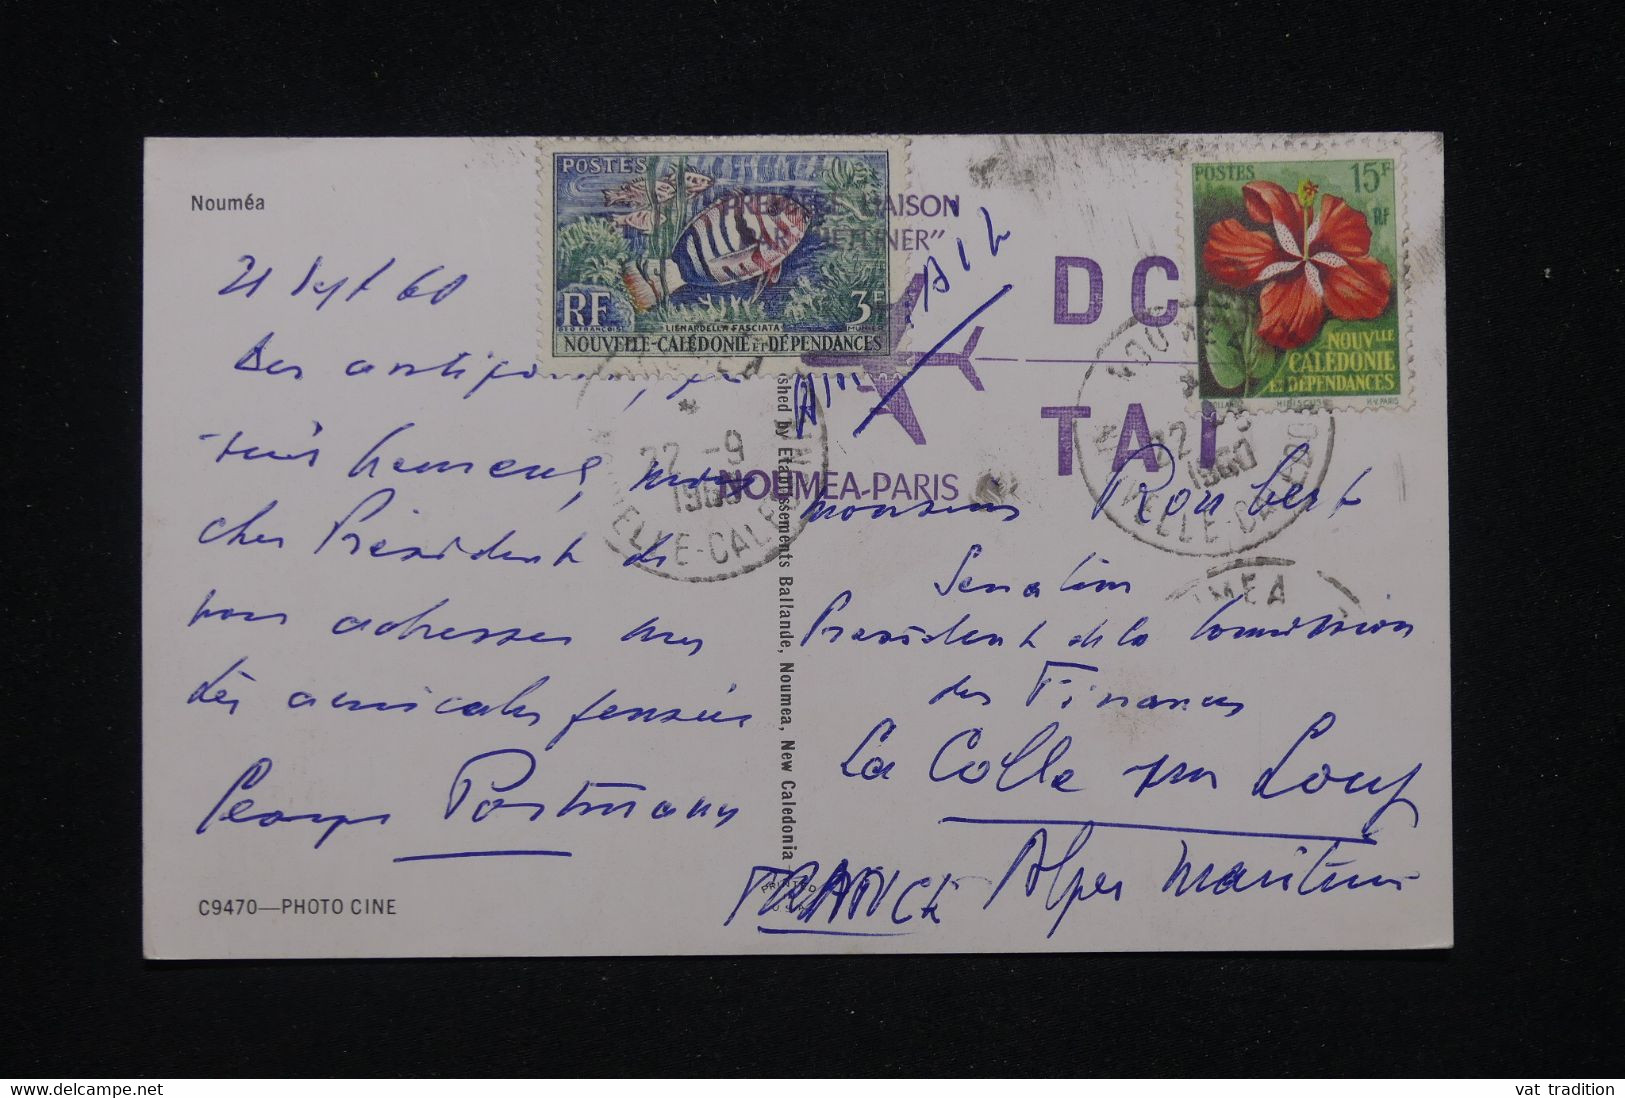 Nouméa
21 Sept 60
Des antipodes, je
suis heureux, mon
cher Président de
vous adresser mes
très amicales pensées
Georges Portmann
C9470—PHOTO CINE
POSTES
RF
3F
LIENARDELLA FASCIATA
NOUVELLE-CALÉDONIE ET DÉPENDANCES
PREMIÈRE LIAISON
PAR "JETLINER"
DC
TAI
NOUMEA-PARIS
AIR
22 -9
1960
POSTES
15F
RF
NOUVLLE
CALÉDONIE
ET DÉPENDANCES
HIBISCUS
H.V. PARIS
22
1960
MEA
Etablissements Ballande, Noumea, New Caledonia
Monsieur Roubert
Senateur
President de la Commission
des Finances
La Colle sur Loup
Alpes Maritimes
FRANCE
vat tradition
delcampe.net